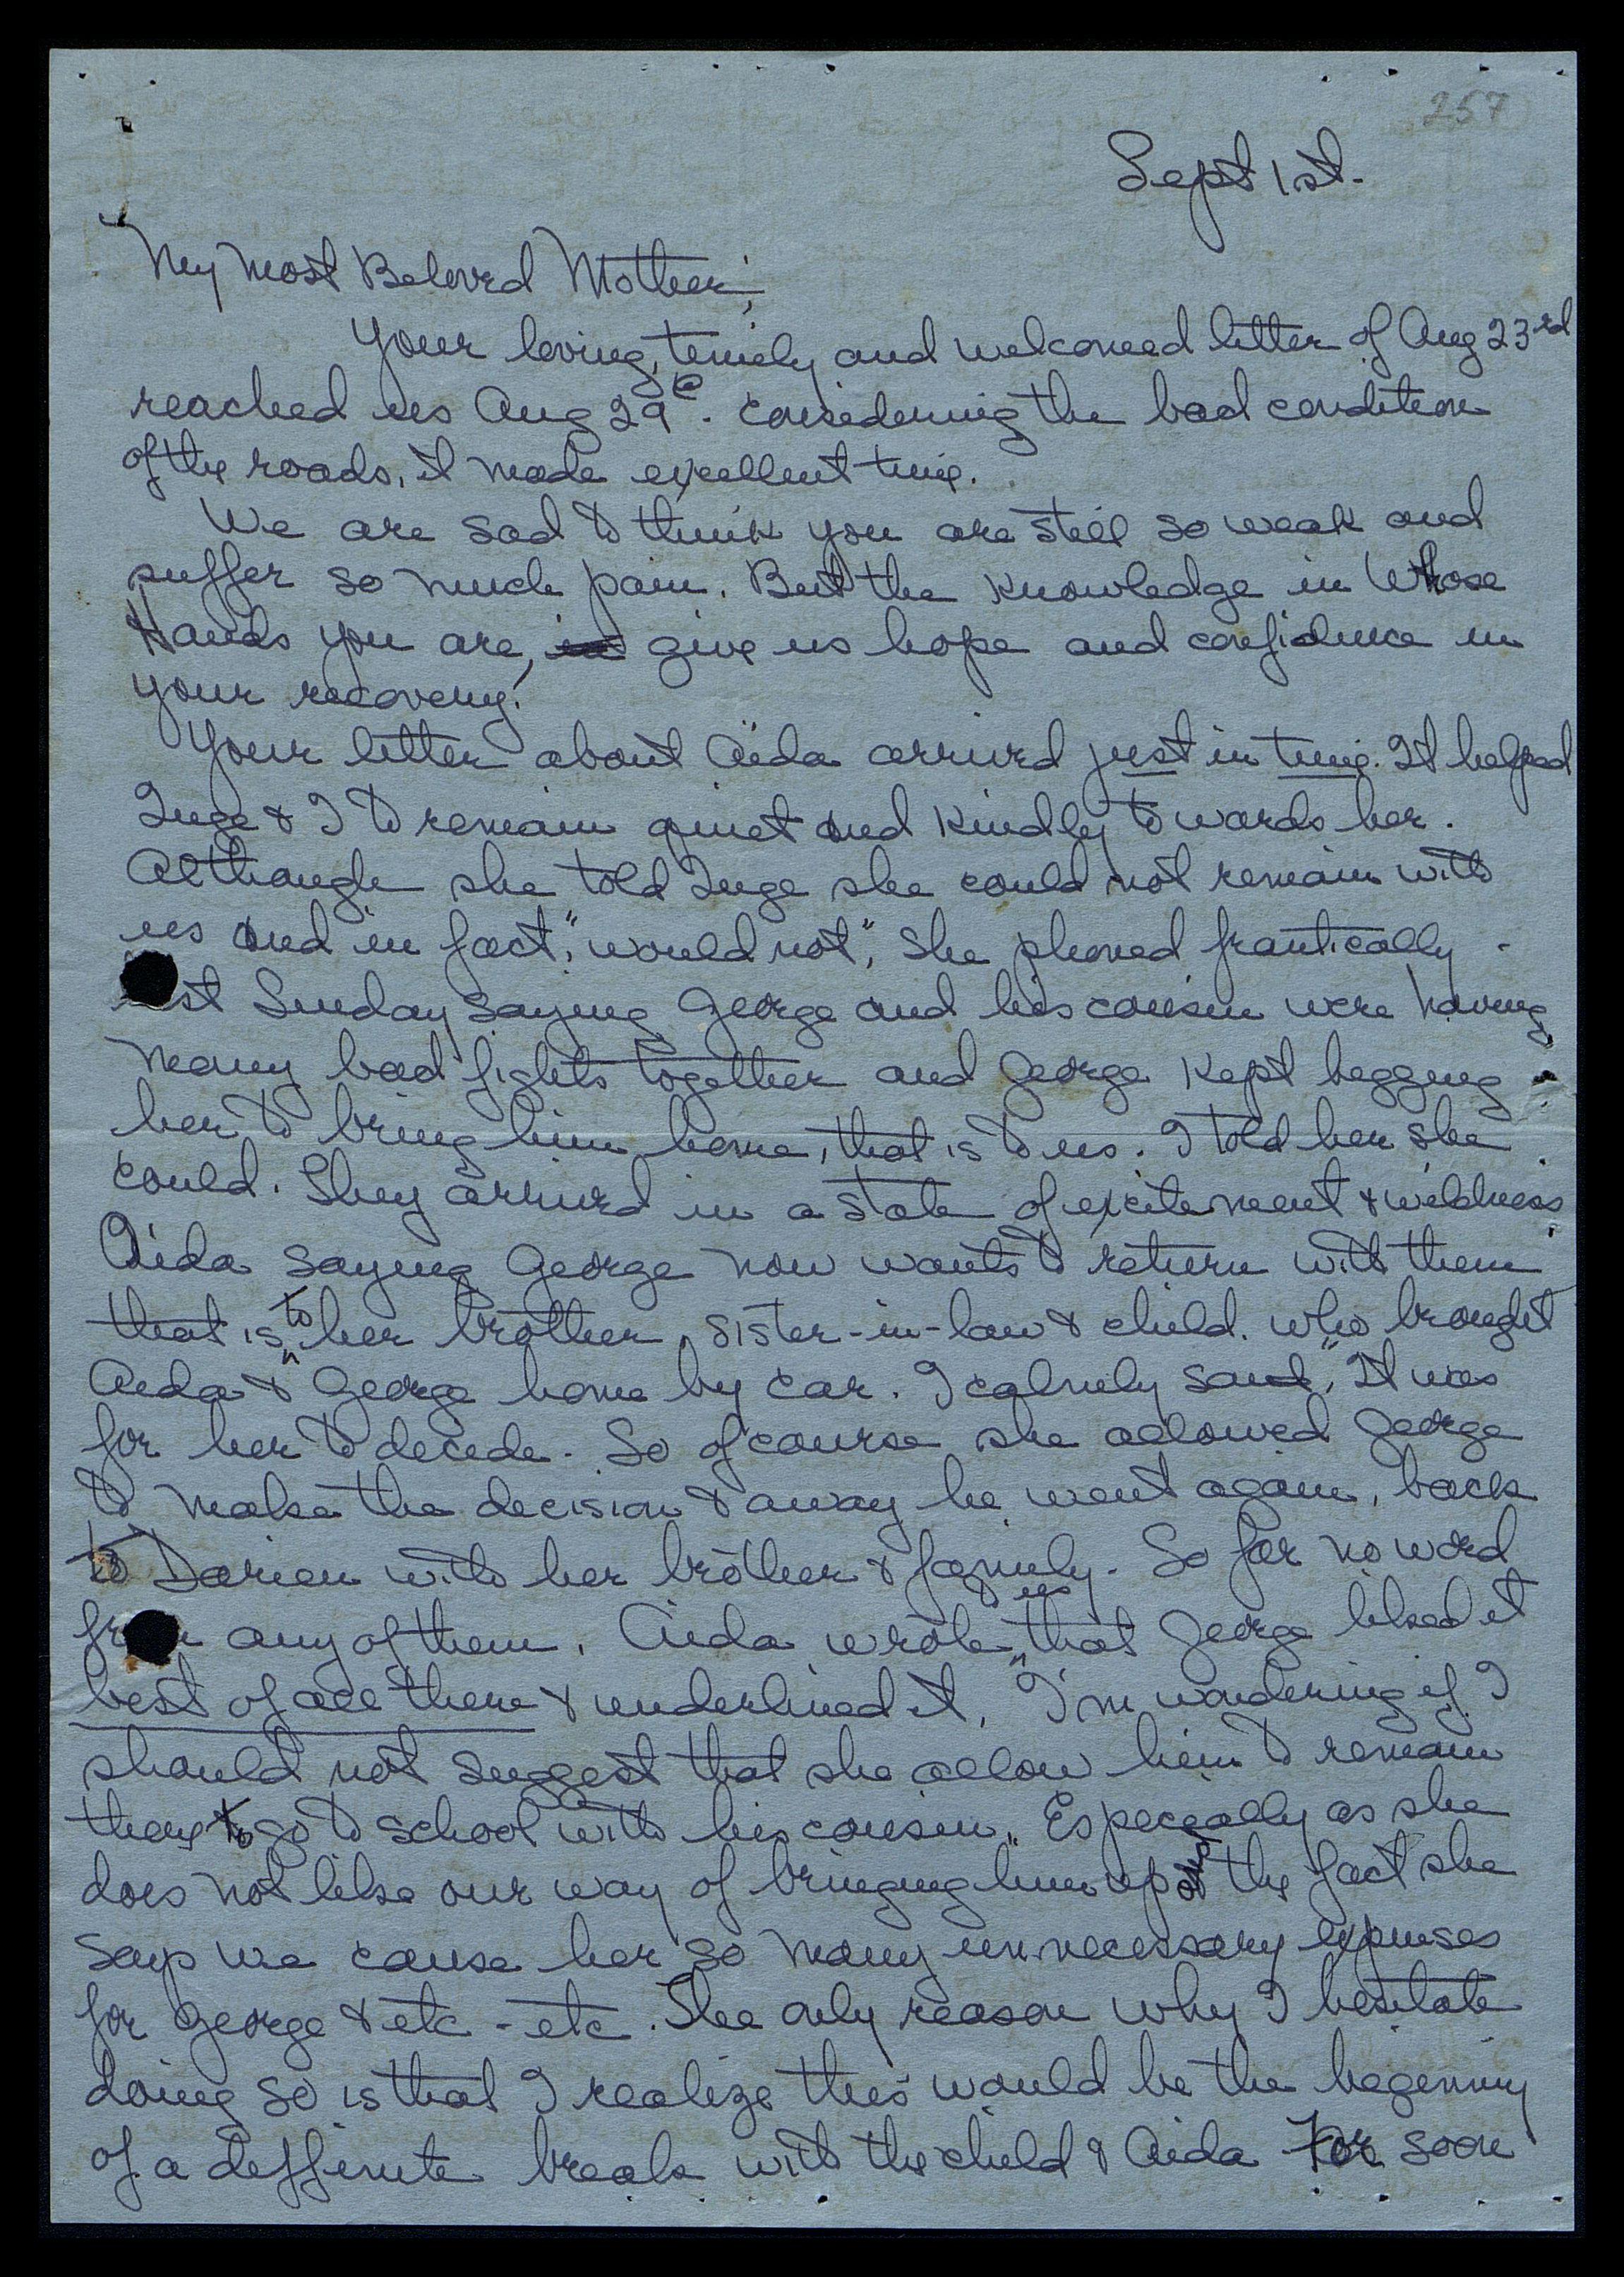 257
Sept 1st.
My Most Beloved Mother,
Your loving, timely and welcomed letter of Aug 23rd
reached us Aug 29th. Considering the bad condition
of the roads, it made excellent time.
We are sad to think you are still so weak and
suffer so much pain. But the knowledge in Whose
Hands you are, give us hope and confidence in
your recovery.
Your letter about Aida arrived just in time. It helped
Inge & I to remain quiet and kindly towards her.
Although she told Inge she could not remain with
us and in fact, "would not", she phoned frantically -
st Sunday saying George and his cousin were having
many bad fights together and George kept begging
her to bring him home, that is to us. I told her she
could. They arrived in a state of excitement & wildness
Aida saying George now wants to return with them
that is to her brother, sister-in-law & child. who brought
Aida & George home by car. I calmly said, "It was
for her to decide. So of course she allowed George
to make the decision & away he went again, back
to Darien with her brother & family. So far no word
from any of them. Aida wrote to us that George liked it
best of all there & underlined it, "I'm wondering if I
should not suggest that she allow him to remain
there to go to school with his cousin," Especeally as she
does not like our way of bringing him up and the fact she
says we cause her so many unnecessary expenses
for George & etc - etc. The only reason why I hesitate
doing so is that I realize this would be the begenning
of a deffinite break with the child & Aida For soon